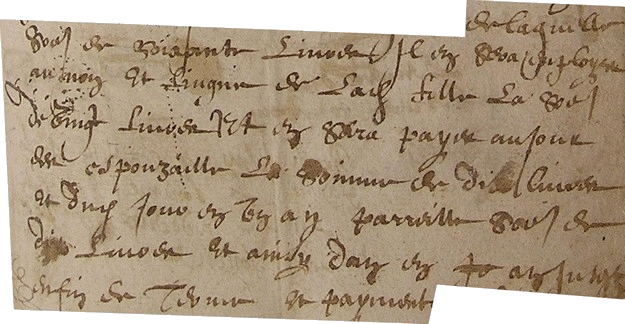 de laquelle
de soixante livres Il en sera employé
au nom et ligne de lad fille la
de vingt livres Et en sera payé au jour
des espouzailles la somme de dix livres
et dud jour en ung an parreille de
dix livres et ainsy dan en an jusques
enfin de terme et payment